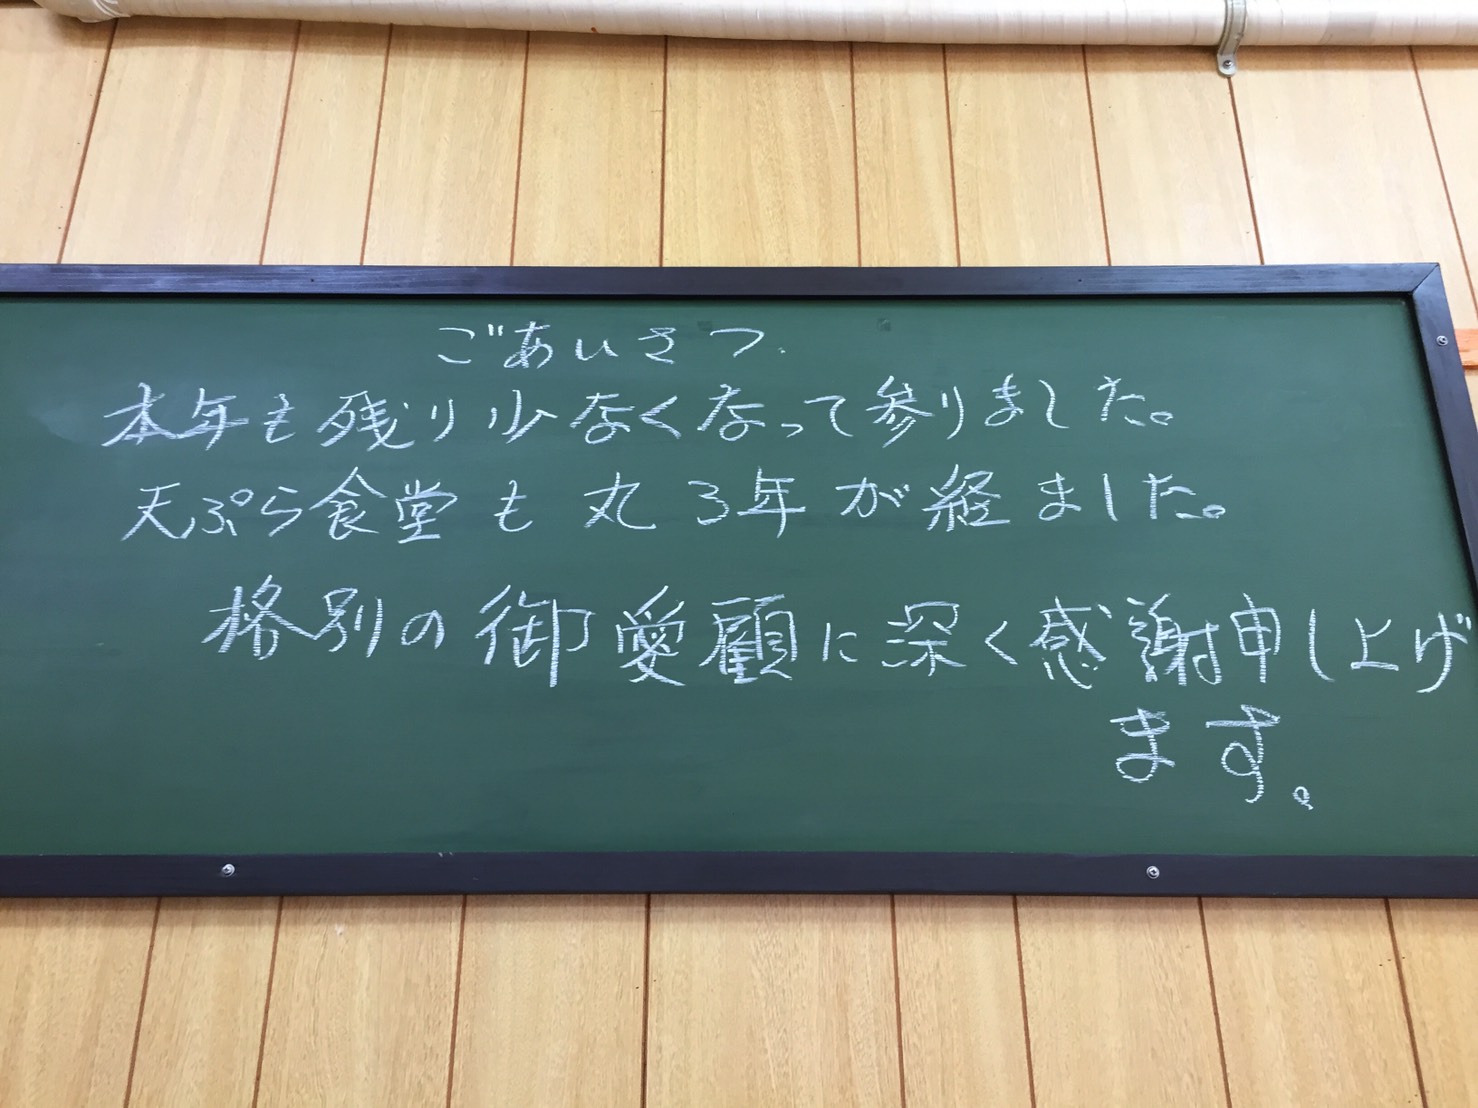 ごあいさつ.
本年も残り少なくなって参りました。
天ぷら食堂も丸3年が経ました。
格別の御愛顧に深く感謝申し上げ
ます。